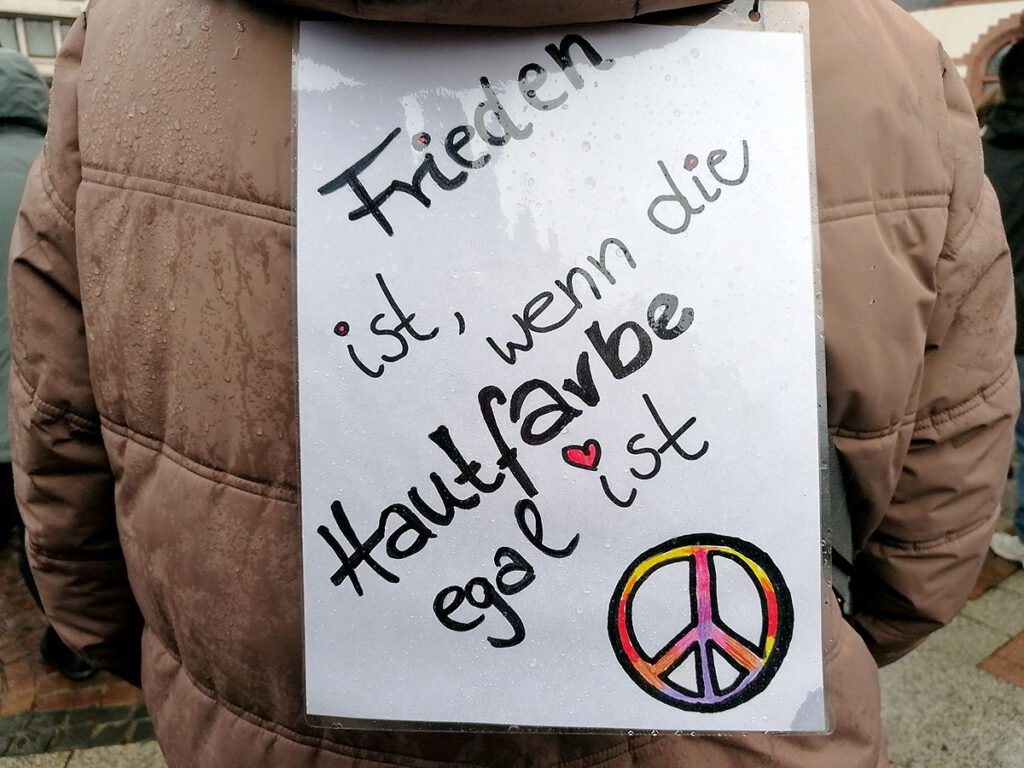 Frieden
ist, wenn die
Hautfarbe
egal ist